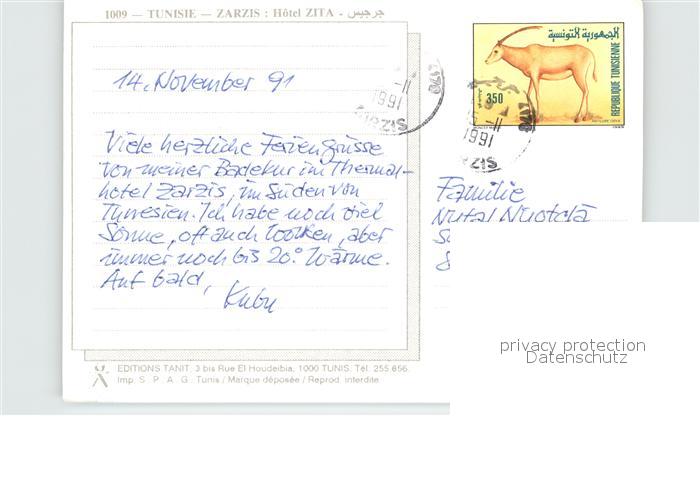 1009 — TUNISIE — ZARZIS : Hôtel ZITA - جرجيس
14. November 91
Viele herzliche Feriengrüsse
von meiner Badekur im Thermal-
hotel Zarzis, im Süden von
Tunesien. Ich habe noch viel
Sonne, oft auch Wolken, aber
immer noch bis 20° Wärme.
Auf bald,
Kubu
EDITIONS TANIT. 3 bis Rue El Houdeibia, 1000 TUNIS. Tél. 255.656.
Imp. S. P. A. G. Tunis / Marque déposée / Reprod. interdite
الجمهورية التونسية
REPUBLIQUE TUNISIENNE
350
-11
1991
-11
1991
Familie
privacy protection
Datenschutz